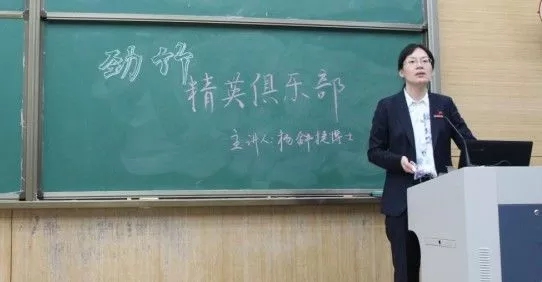 劲竹
精英俱乐部
主讲人:杨舒捷博士